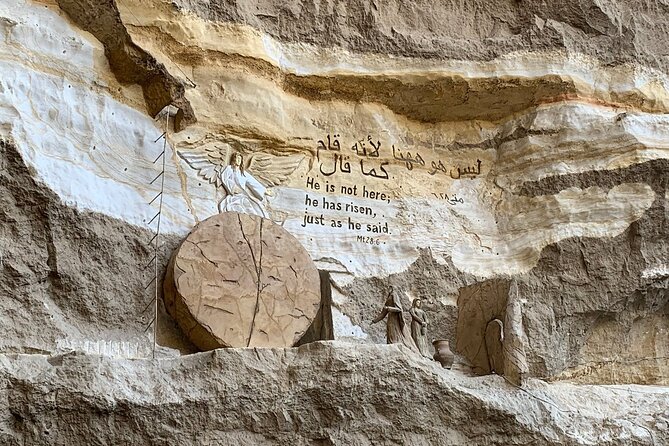 ليس هو ههنا لأنه قام
كما قال
He is not here;
he has risen,
just as he said.
Mt 28:6